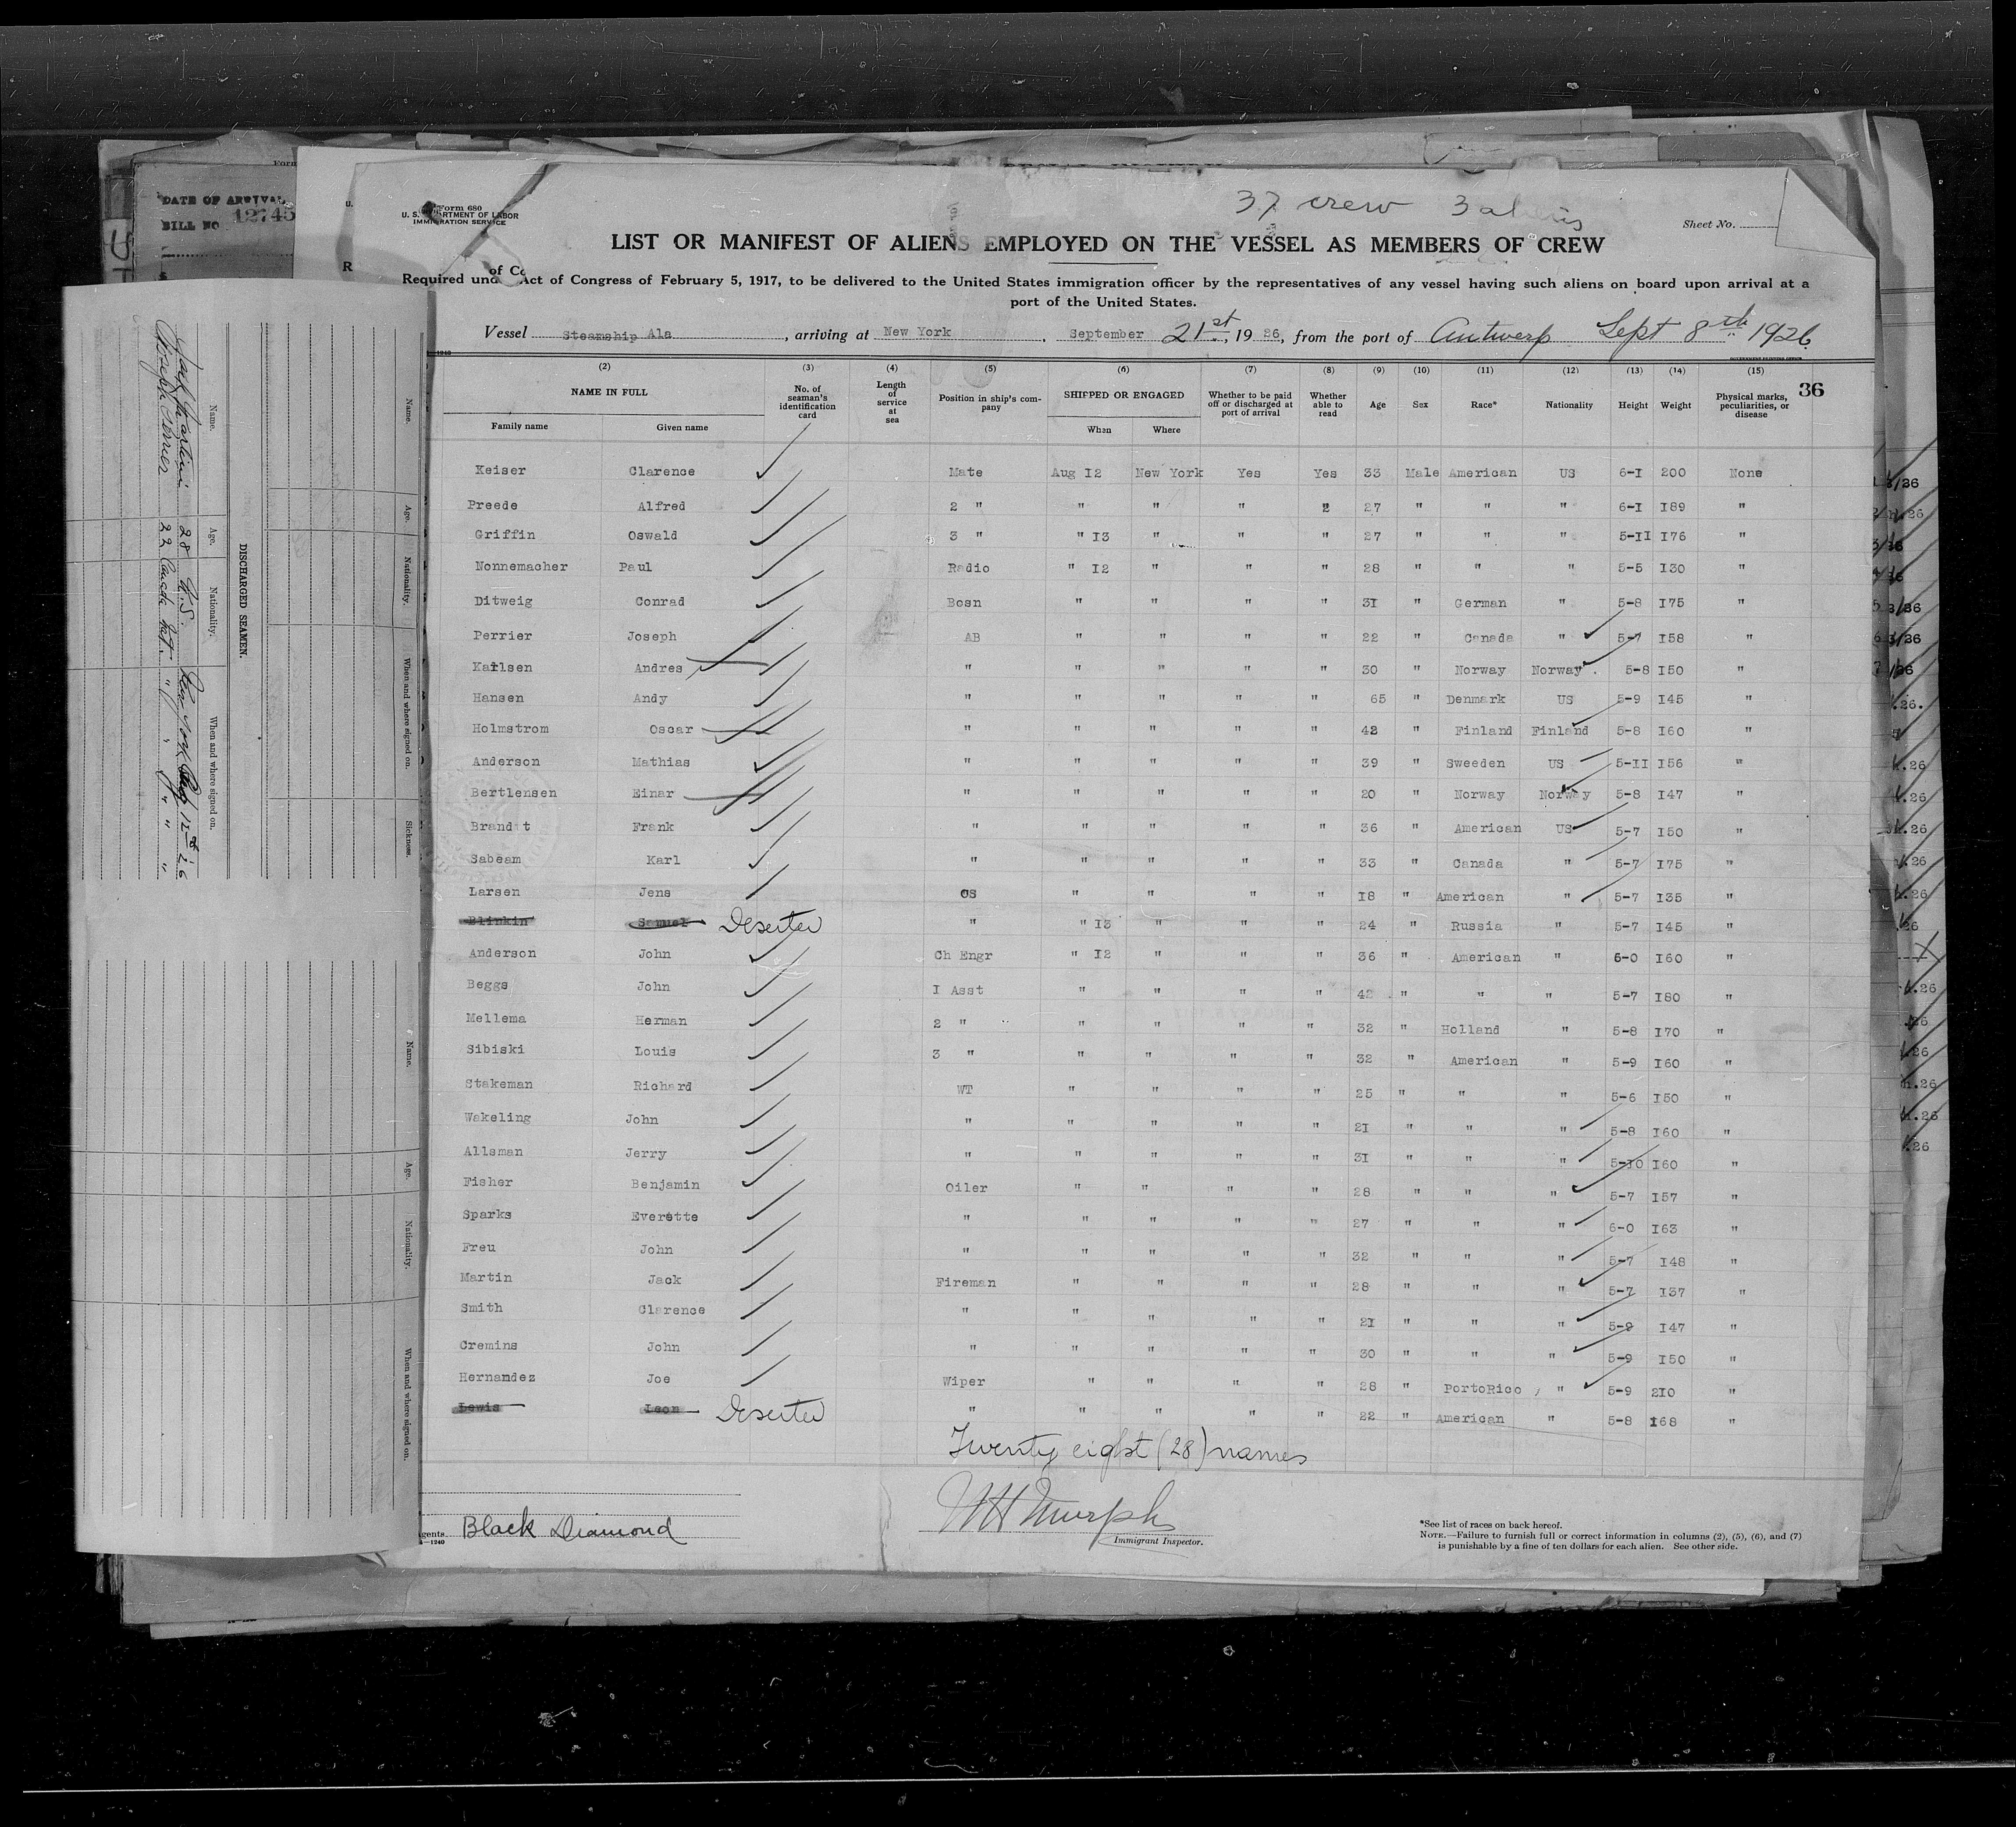 DATE OF ARRIVAL
BILL NO 12745
Form 680
U. S. DEPARTMENT OF LABOR
IMMIGRATION SERVICE
37 crew 3 aliens
Sheet No.
LIST OR MANIFEST OF ALIENS EMPLOYED ON THE VESSEL AS MEMBERS OF CREW
Required under Act of Congress of February 5, 1917, to be delivered to the United States immigration officer by the representatives of any vessel having such aliens on board upon arrival at a
port of the United States.
Vessel Steamship Ala, arriving at New York, September 21st, 1926, from the port of Antwerp Sept 8th 1926
(2) (3) (4) (5) (6) (7) (8) (9) (10) (11) (12) (13) (14) (15) 36
NAME IN FULL No. of seaman's identification card Length of service at sea Position in ship's company SHIPPED OR ENGAGED Whether to be paid off or discharged at port of arrival Whether able to read Age Sex Race* Nationality Height Weight Physical marks, peculiarities, or disease
Family name Given name When Where
Keiser Clarence Mate Aug I2 New York Yes Yes 33 Male American US 6-I 200 None
Preede Alfred 2 " " " " " 27 " " " 6-I I89 "
Griffin Oswald 3 " " I3 " " " 27 " " " 5-II I76 "
Nonnemacher Paul Radio " I2 " " " 28 " " " 5-5 I30 "
Ditweig Conrad Bosn " " " " 3I " German " 5-8 I75 "
Perrier Joseph AB " " " " 22 " Canada " 5-7 I58 "
Karlsen Andres " " " " " 30 " Norway Norway 5-8 I50 "
Hansen Andy " " " " " 65 " Denmark US 5-9 I45 "
Holmstrom Oscar " " " " " 42 " Finland Finland 5-8 I60 "
Anderson Mathias " " " " " 39 " Sweeden US 5-II I56 "
Bertlensen Einar " " " " " 20 " Norway Norway 5-8 I47 "
Brandt Frank " " " " " 36 " American US 5-7 I50 "
Sabeam Karl " " " " " 33 " Canada " 5-7 I75 "
Larsen Jens OS " " " " I8 " American " 5-7 I35 "
Blinkin Samuel Deserted " " I3 " " " 24 " Russia " 5-7 I45 "
Anderson John Ch Engr " I2 " " " 36 " American " 6-0 I60 "
Beggs John I Asst " " " " 42 " " " 5-7 I80 "
Mellema Herman 2 " " " " " 32 " Holland " 5-8 I70 "
Sibiski Louis 3 " " " " " 32 " American " 5-9 I60 "
Stakeman Richard WT " " " " 25 " " " 5-6 I50 "
Wakeling John " " " " " 2I " " " 5-8 I60 "
Allsman Jerry " " " " " 3I " " " 5-I0 I60 "
Fisher Benjamin Oiler " " " " 28 " " " 5-7 I57 "
Sparks Everette " " " " " 27 " " " 6-0 I63 "
Freu John " " " " " 32 " " " 5-7 I48 "
Martin Jack Fireman " " " " 28 " " " 5-7 I37 "
Smith Clarence " " " " " 2I " " " 5-9 I47 "
Cremins John " " " " " 30 " " " 5-9 I50 "
Hernandez Joe Wiper " " " " 28 " PortoRico " 5-9 2I0 "
Lewis Leon Deserted " " " " " 22 " American " 5-8 I68 "
Twenty eight (28) names
Agents. Black Diamond
Immigrant Inspector.
*See list of races on back hereof.
NOTE.—Failure to furnish full or correct information in columns (2), (5), (6), and (7)
is punishable by a fine of ten dollars for each alien. See other side.
DISCHARGED SEAMEN.
Name. Age. Nationality. When and where signed on. Sickness.
28 U.S. New York
Joseph Perrier 22 Canada " " "
Name. Age. Nationality. When and where signed on.